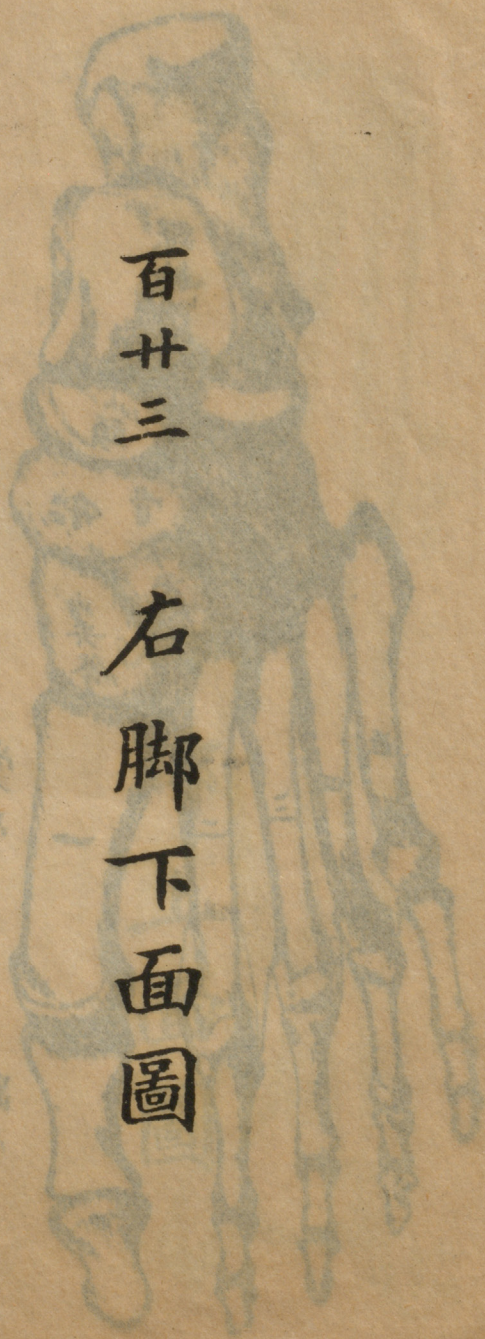 百廿三 右脚下面圖